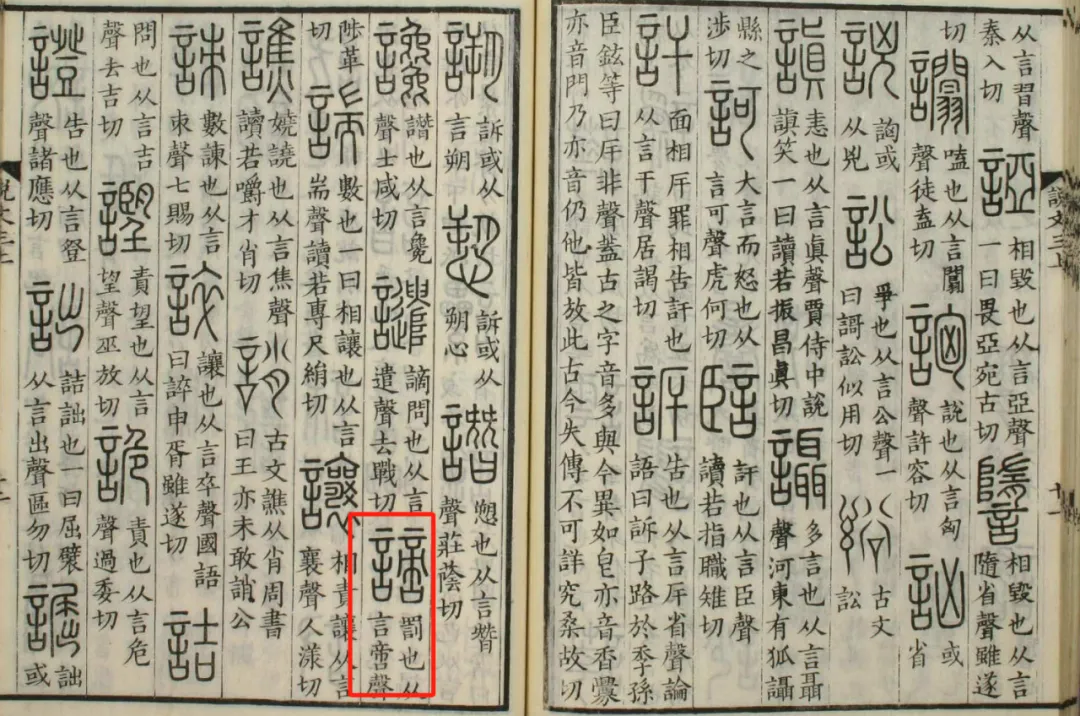 从言習聲秦入切 䛩 相毀也从言亞聲一曰畏亞宛古切 䜐 相毀也从言隨省聲雖遂
切 𧮑 嗑也从言闒聲徒盍切 詾 說也从言匈聲許容切 訩 或省
説 詾或从兇 訟 爭也从言公聲一曰謌訟似用切 𧧏 古文訟
謓 恚也从言眞聲賈侍中說謓笑一曰讀若振昌眞切 讘 多言也从言聶聲河東有狐讘
縣之涉切 訶 大言而怒也从言可聲虎何切 䛊 訐也从言臣聲讀若指職雉切
訐 面相厈罪相告訐也从言干聲居謁切 訴 告也从言厈省聲論語曰訴子路於季孫
臣鉉等曰厈非聲蓋古之字音多與今異如皀亦音香釁亦音門乃亦音仍他皆放此古今失傳不可詳究桑故切
說文三上
十一
𧪜 訴或从言朔 愬 訴或从朔心 譖 愬也从言朁聲莊蔭切
讒 譖也从言毚聲士咸切 譴 謫問也从言遣聲去戰切 謫 罰也从言啻聲
陟革切 諯 數也一曰相讓也从言耑聲讀若專尺絹切 讓 相責讓从言襄聲人漾切
譙 嬈譊也从言焦聲讀若嚼才肖切 誚 古文譙从肖周書曰王亦未敢誚公
諫 數諫也从言朿聲七賜切 誶 讓也从言卒聲國語曰誶申胥雖遂切 詰
問也从言吉聲去吉切 謹 責望也从言望聲巫放切 詭 責也从言危聲過委切
證 告也从言登聲諸應切 詘 詰詘也一曰屈襞从言出聲區勿切 詘或